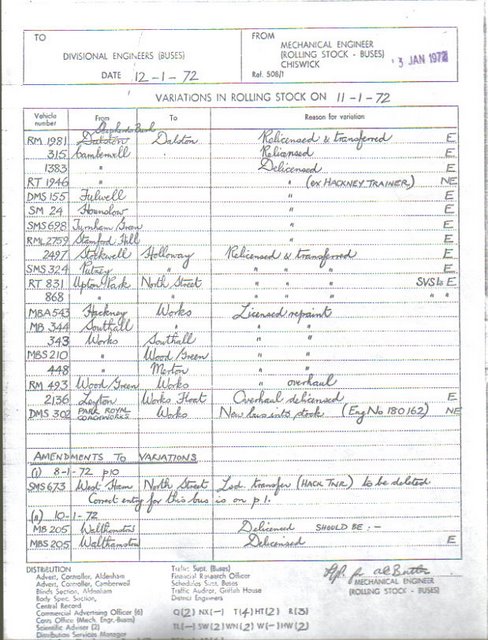 TO
DIVISIONAL ENGINEERS (BUSES)
DATE 12-1-72
FROM
MECHANICAL ENGINEER
(ROLLING STOCK - BUSES)
CHISWICK
Ref. 508/1
3 JAN 1972
VARIATIONS IN ROLLING STOCK ON 11-1-72
Vehicle number From To Reason for variation
Shepherds Bush
RM 1981 Dalston Dalston Relicensed & transferred E
315 Camberwell Relicensed E
1383 " Delicensed E
RT 1946 " " (ex HACKNEY TRAINER) NE
DMS 155 Fulwell " E
SM 24 Hounslow " E
SMS 698 Turnham Green " E
RML 2759 Stamford Hill " E
2497 Stockwell Holloway Relicensed & transferred E
SMS 324 Putney " " " " E
RT 831 Upton Park North Street " " " SVS to E
868 " " " " " " "
MBA 543 Hackney Works Licensed repaint
MB 344 Southall " " "
343 Works Southall " "
MBS 210 " Wood Green " "
448 " Merton " "
RM 493 Wood Green Works " overhaul
2136 Leyton Works Float Overhaul delicensed E
DMS 302 PARK ROYAL COACHWORKS Works New bus into stock (Eng No 180162) NE
AMENDMENTS TO VARIATIONS
(i) 8-1-72 p10
SMS 673 West Ham North Street Lsd. transfer (HACK TNR) to be deleted
Correct entry for this bus is on p 1.
(ii) 10-1-72
MB 205 Walthamstow Delicensed SHOULD BE :-
MBS 205 Walthamstow Delicensed E
DISTRIBUTION
Advert. Controller, Aldenham
Advert. Controller, Camberwell
Blinds Section, Aldenham
Body Spec. Section,
Central Record
Commercial Advertising Officer (6)
Cons Office (Mech. Engr.-Buses)
Scientific Adviser (2)
Distribution Services Manager
Traffic Supt. (Buses)
Financial Research Officer
Schedules Supt. Buses
Traffic Auditor, Griffith House
District Engineers
Q (2) NX (-) T (4) HT (2) R (3)
TL (-) SW (2) WN (2) W (-) HW (2)
MECHANICAL ENGINEER
(ROLLING STOCK - BUSES)